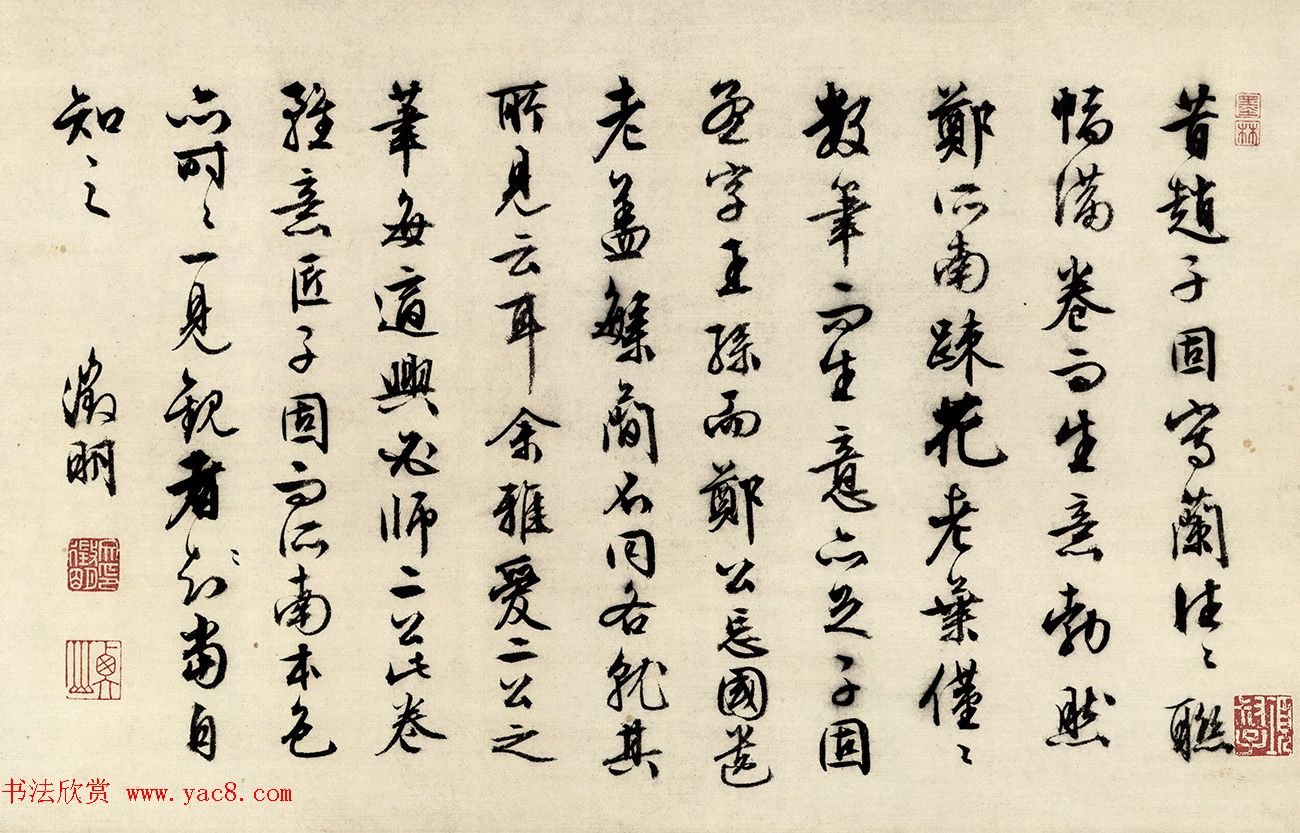 昔趙子固寫蘭往往聯
幅滿卷而生意勃然
鄭所南疎花老葉僅僅
數筆而生意亦足子固
孟字王孫而鄭公忘國遺
老蓋繁簡不同各就其
所見云耳余雅愛二公之
筆每適興必師二公此卷
雖意匠子固而所南本色
亦時時一見觀者當自
知之
徵明
墨林
書法欣赏 www.yac8.com